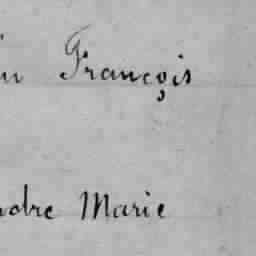 in François
ndre Marie